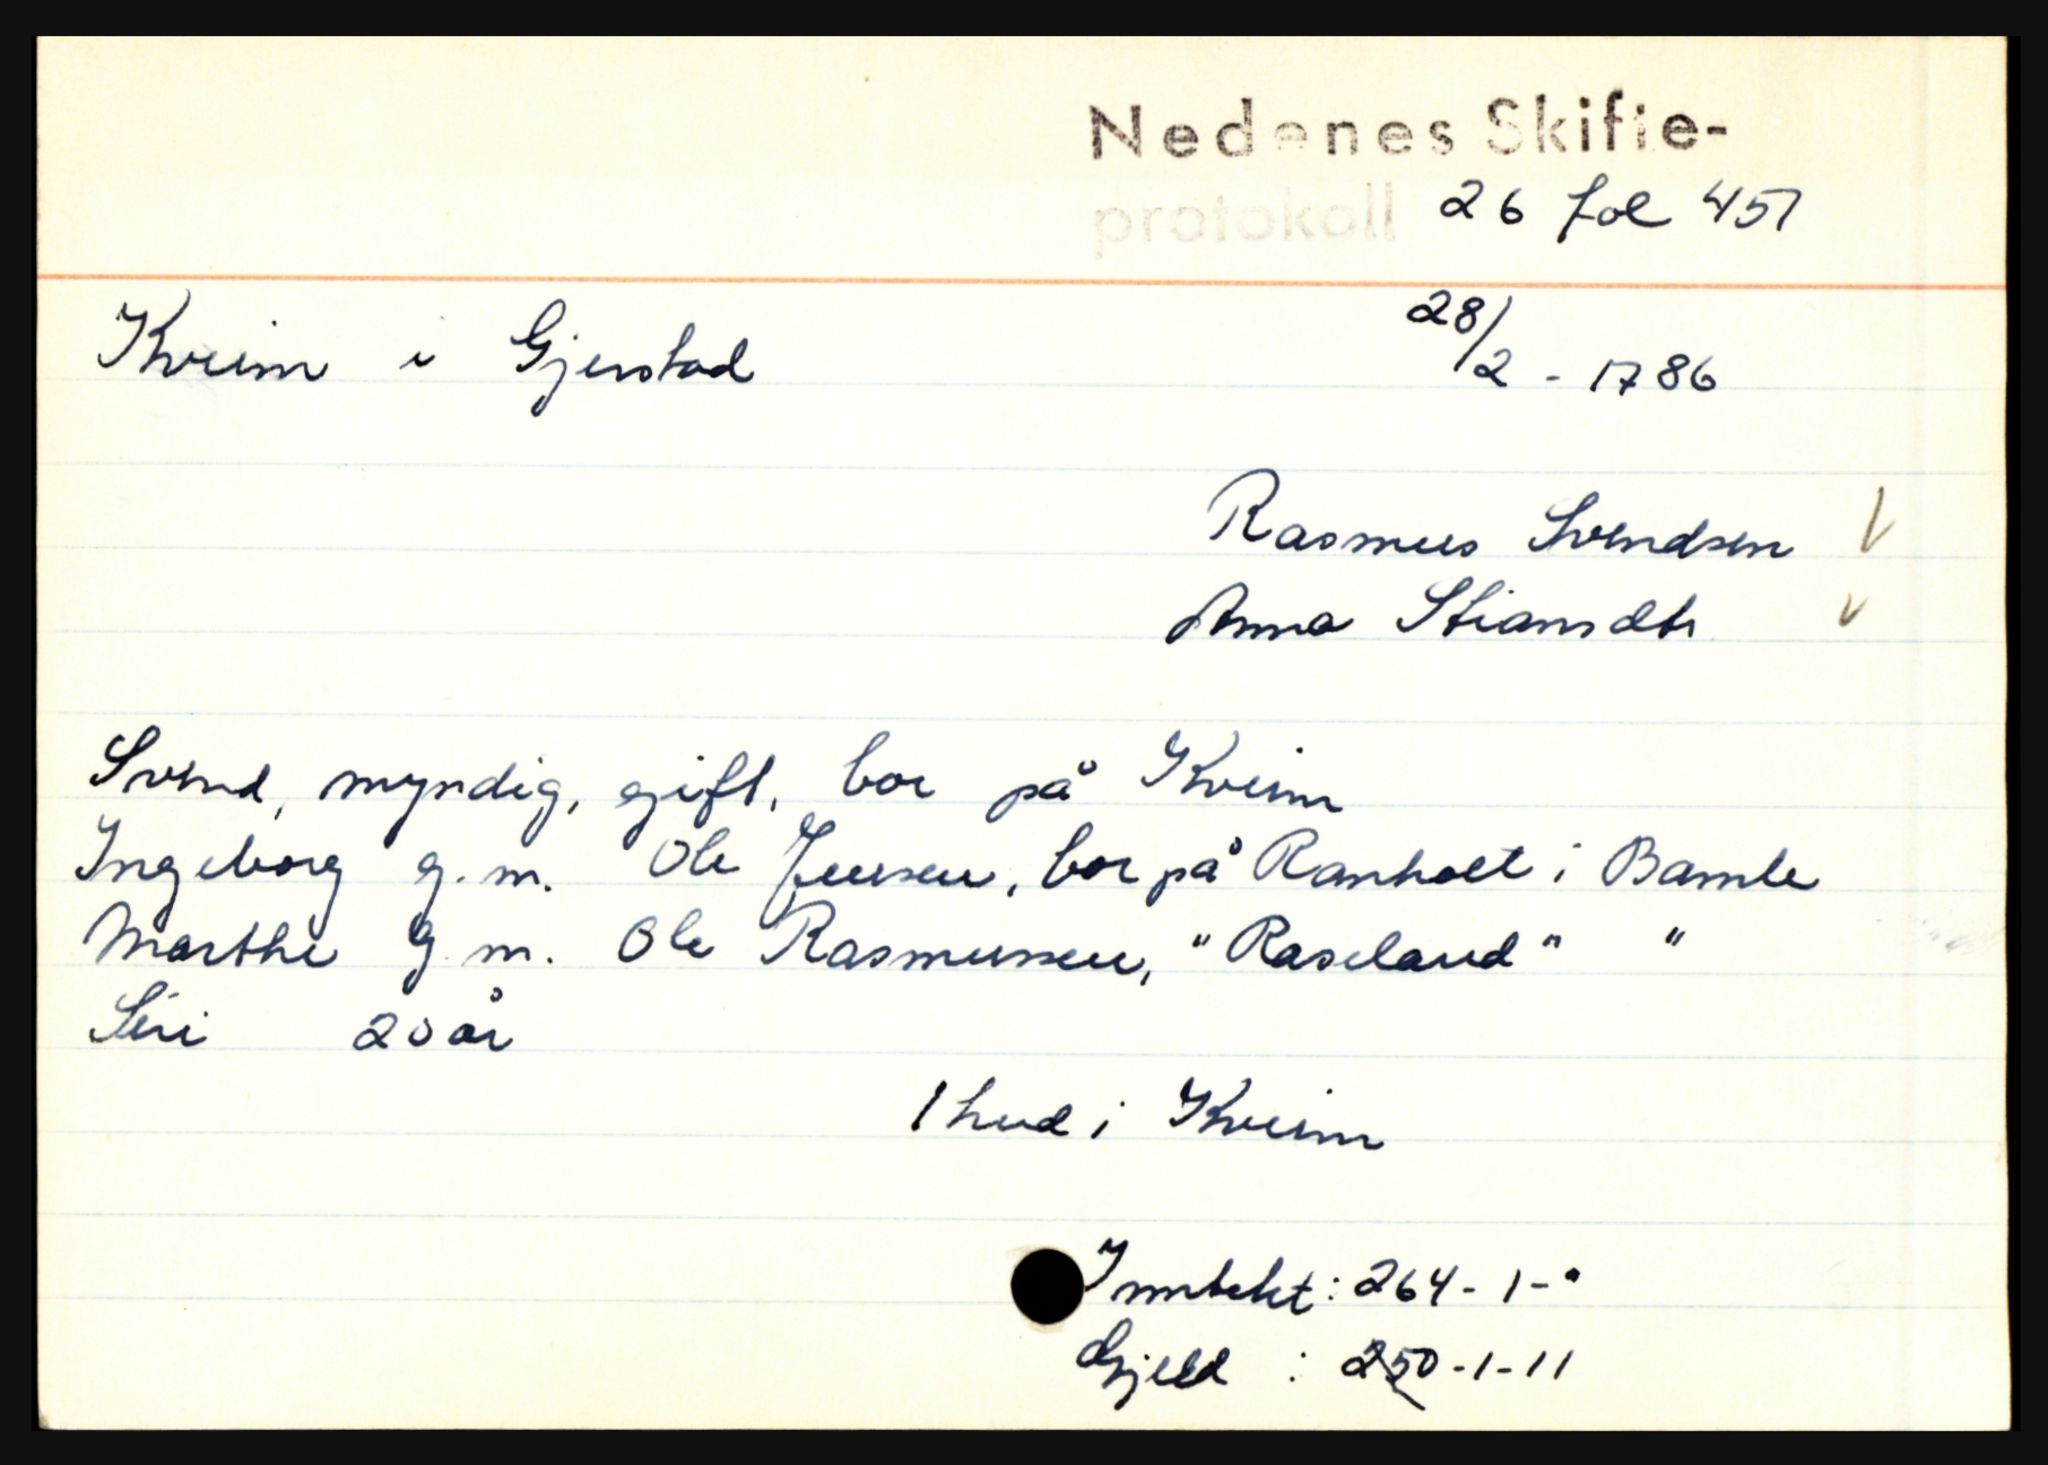 Nedenes Skifte-
protokoll 26 fol 457
Kveim i Gjerstad 28/2 - 1786
Rasmus Svendsen V
Anna Stiansdtr v
Svend, myndig, gift, bor på Kveim
Ingeborg g. m. Ole Jensen, bor på Ranholt i Bamle
Marthe g. m. Ole Rasmussen, " Raseland " "
Siri 20 år
1 hud i Kveim
Inntekt : 264 - 1 - "
Gjeld : 250 - 1 - 11